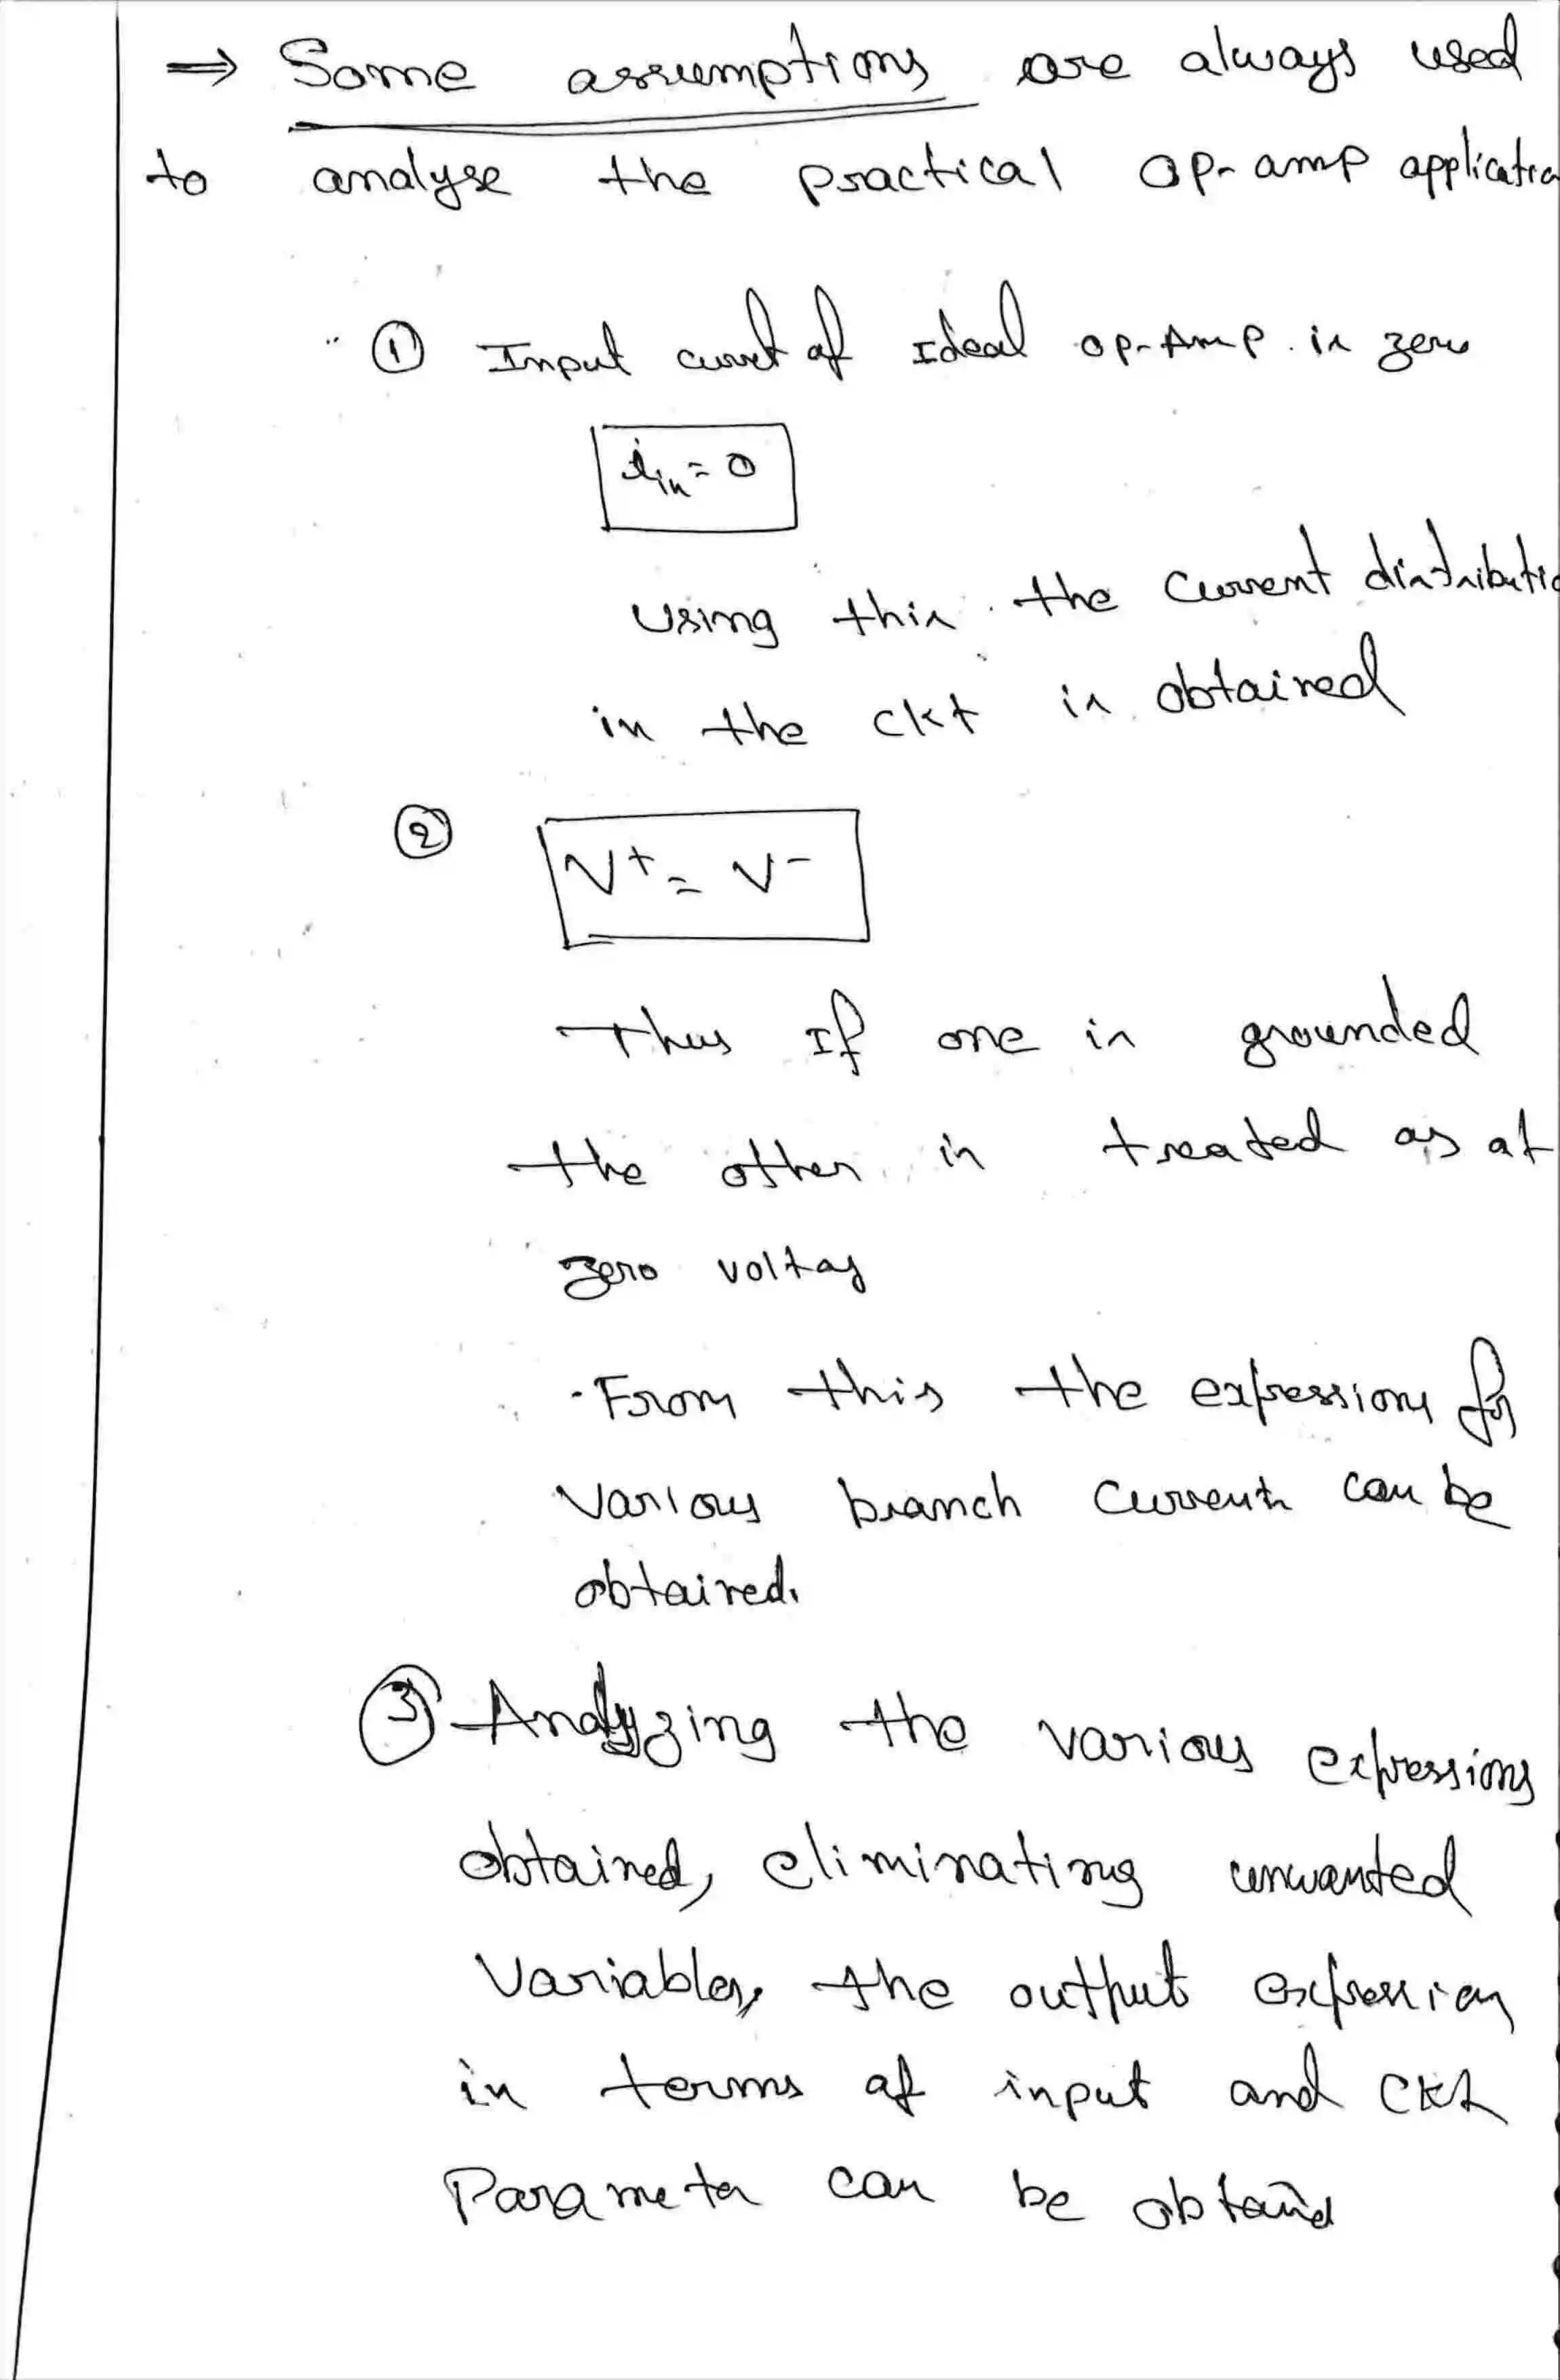 ⇒ Some assumptions are always used
to analyse the practical op-amp applicatio
① Input currt of Ideal op-Amp. is zero
i_in = 0
Using this the current distributio
in the ckt is obtained
②
V⁺ = V⁻
Thus If one is grounded
the other is treated as at
zero voltag
- From this the expressions for
various branch currents can be
obtained.
③ Analyzing the various expressions
obtained, eliminating unwanted
Variables, the output expression
in terms of input and ckt
Parameter can be obtained